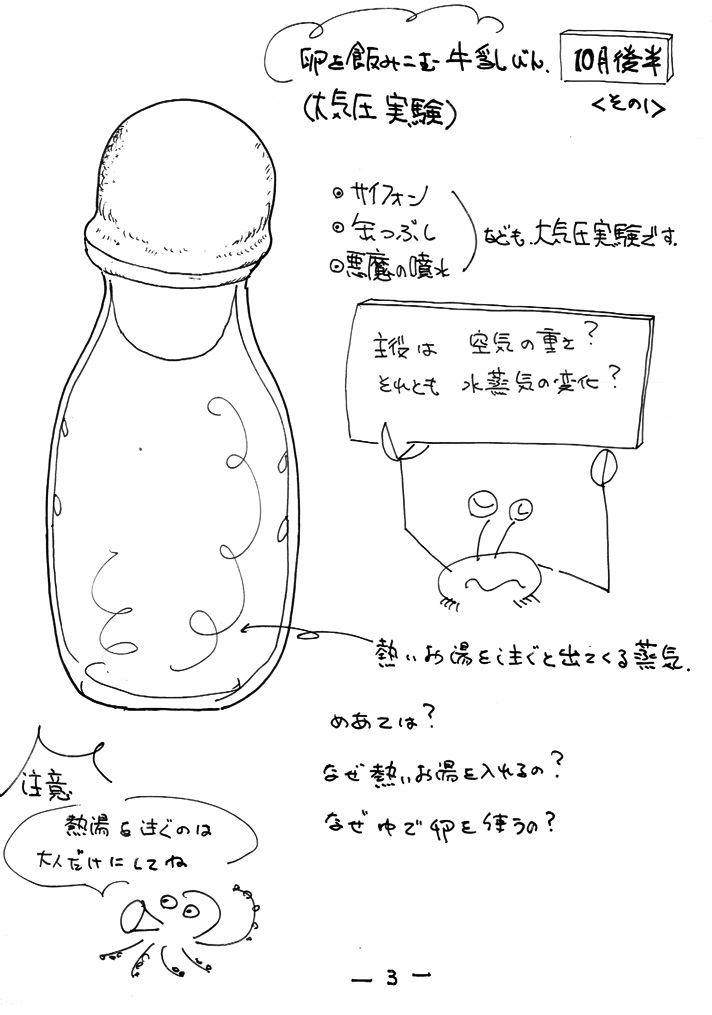 卵を飲みこむ牛乳びん.
10月後半
(大気圧実験)
<その1>
◎サイフォン
◎缶つぶし
◎悪魔の噴水
なども、大気圧実験です.
主役は 空気の重さ?
それとも 水蒸気の変化?
熱いお湯を注ぐと出てくる蒸気.
めあては?
なぜ熱いお湯を入れるの?
なぜゆで卵を使うの?
注意
熱湯を注ぐのは
大人だけにしてね
— 3 —